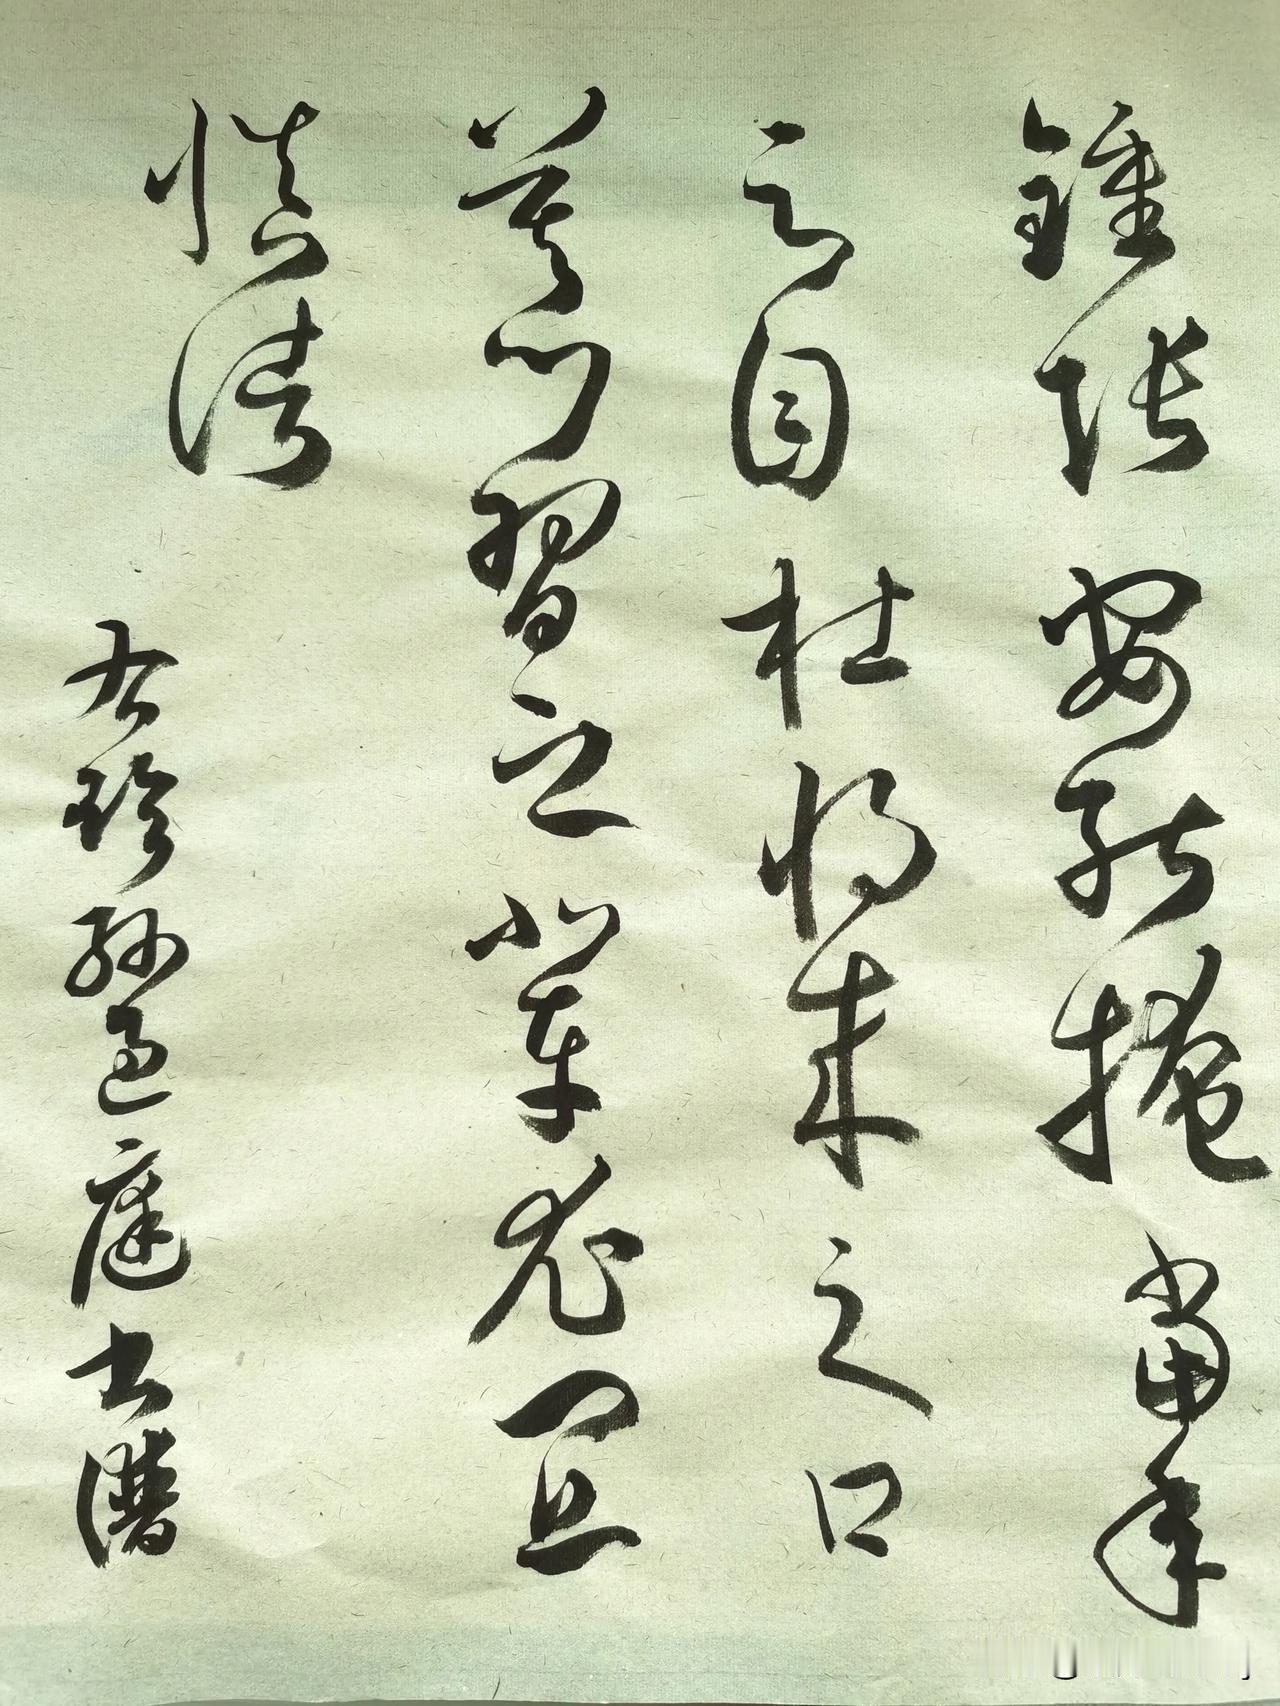 鍾張安能掩當年
之目杜將來之口
慕習之輩尤宜
慎諸
右臨孫過庭書譜